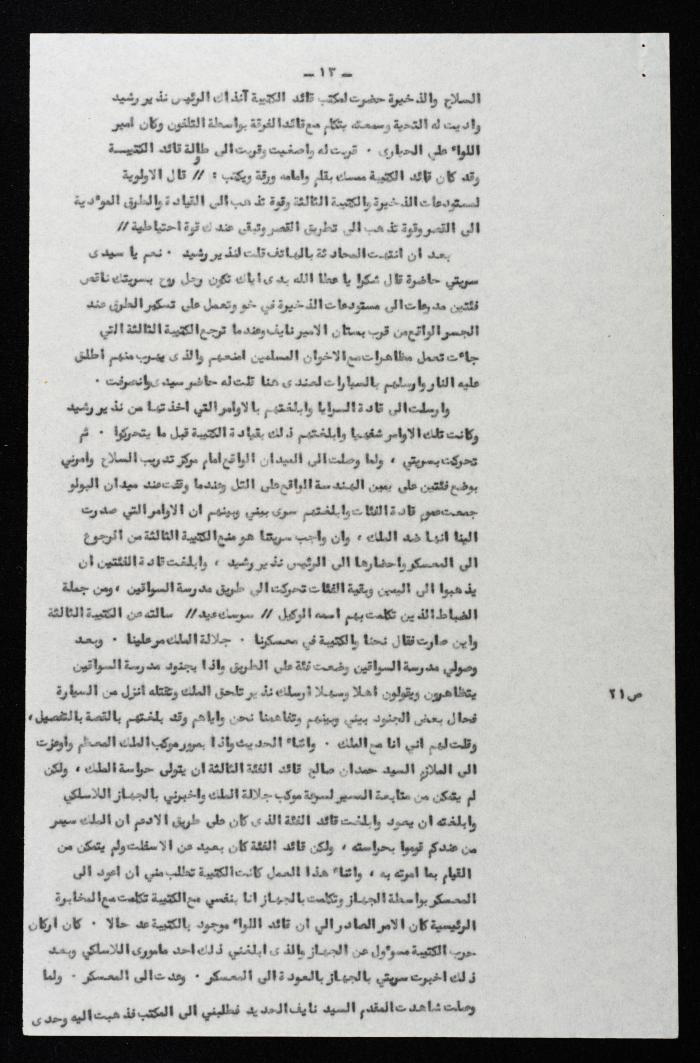 – ١٣ –
السلاح والذخيرة حضرت لمكتب قائد الكتيبة آنذاك الرئيس نذير رشيد
واديت له التحية وسمعته يتكلم مع قائد الفرقة بواسطة التلفون وكان امير
اللواء علي الحياري ٠ قربت له واصغيت وقربت الى طاولة قائد الكتيبة
وقد كان قائد الكتيبة ممسك بقلم وامامه ورقة ويكتب : // قال الاولوية
لمستودعات الذخيرة والكتيبة الثالثة وقوة تذهب الى القيادة والطرق المؤدية
الى القصر وقوة تذهب الى تطريق القصر وتبقى عندك قوة احتياطية //
بعد ان انتهت المحادثة بالهاتف قلت لنذير رشيد ٠ نعم يا سيدى
سريتي حاضرة قال شكرا يا عطا الله بدى اياك تكون رجل روح بسريتك ناقص
فئتين مدرعات الى مستودعات الذخيرة في خو وتعمل على تسكير الطرق عند
الجسر الواقع من قرب بستان الامير نايف وعندما ترجع الكتيبة الثالثة التي
جاءت تعمل مظاهرات مع الاخوان المسلمين امنعهم والذى يهرب منهم اطلق
عليه النار وارسلهم بالسيارات لعندى هنا قلت له حاضر سيدى وانصرفت ٠
وارسلت الى قادة السرايا وابلغتهم بالاوامر التي اخذتها من نذير رشيد
وكانت تلك الاوامر شفهيا وابلغتهم ذلك بقيادة الكتيبة قبل ما يتحركوا ٠ ثم
تحركت بسريتي ، ولما وصلت الى الميدان الواقع امام مركز تدريب السلاح وامرني
بوضع فئتين على يمين الهندسة الواقع على التل وعندما وقفت عند ميدان البولو
جمعت عموم قادة الفئات وابلغتهم سوى بيني وبينهم ان الاوامر التي صدرت
الينا انها ضد الملك ، وان واجب سريتنا هو منع الكتيبة الثالثة من الرجوع
الى المعسكر واحضارها الى الرئيس نذير رشيد ، وابلغت قادة الفئتين ان
يذهبوا الى اليمين وبقية الفئات تحركت الى طريق مدرسة السواقين ، ومن جملة
الضباط الذين تكلمت بهم اسمه الوكيل // سوسك عيد // سالته عن الكتيبة الثالثة
واين صارت فقال نحنا والكتيبة في معسكرنا ٠ جلالة الملك مر علينا ٠ وبعد
وصولي مدرسة السواقين وضعت فئة على الطريق واذا بجنود مدرسة السواقين
يتظاهرون ويقولون اهلا وسهلا ارسلك نذير تلحق الملك وتقتله انزل من السيارة
ص ٢١
فحال بعض الجنود بيني وبينهم وتفاهمنا نحن واياهم وقد بلغتهم بالقصة بالتفصيل ،
وقلت لهم اني انا مع الملك ٠ واثناء الحديث واذا بمرور موكب الملك المعظم واوعزت
الى الملازم السيد حمدان صالح قائد الفئة الثالثة ان يتولى حراسة الملك ، ولكن
لم يتمكن من متابعة المسير لسرعة موكب جلالة الملك واخبرني بالجهاز اللاسلكي
وابلغته ان يعود وابلغت قائد الفئة الذى كان على طريق الادعم ان الملك سيمر
من عندكم قوموا بحراسته ، ولكن قائد الفئة كان بعيد عن الاسفلت ولم يتمكن من
القيام بما امرته به ، واثناء هذا العمل كانت الكتيبة تطلب مني ان اعود الى
المعسكر بواسطة الجهاز وتكلمت بالجهاز انا بنفسي مع الكتيبة تكلمت مع المخابرة
الرئيسية كان الامر الصادر الي ان قائد اللواء موجود بالكتيبة عد حالا ٠ كان اركان
حرب الكتيبة مسؤول عن الجهاز والذى ابلغني ذلك احد مامورى اللاسلكي وبعد
ذلك اخبرت سريتي بالجهاز بالعودة الى المعسكر ٠ وعدت الى المعسكر ٠ ولما
وصلت شاهدت المقدم السيد نايف الحديد فطلبني الى المكتب فذهبت اليه وحدى